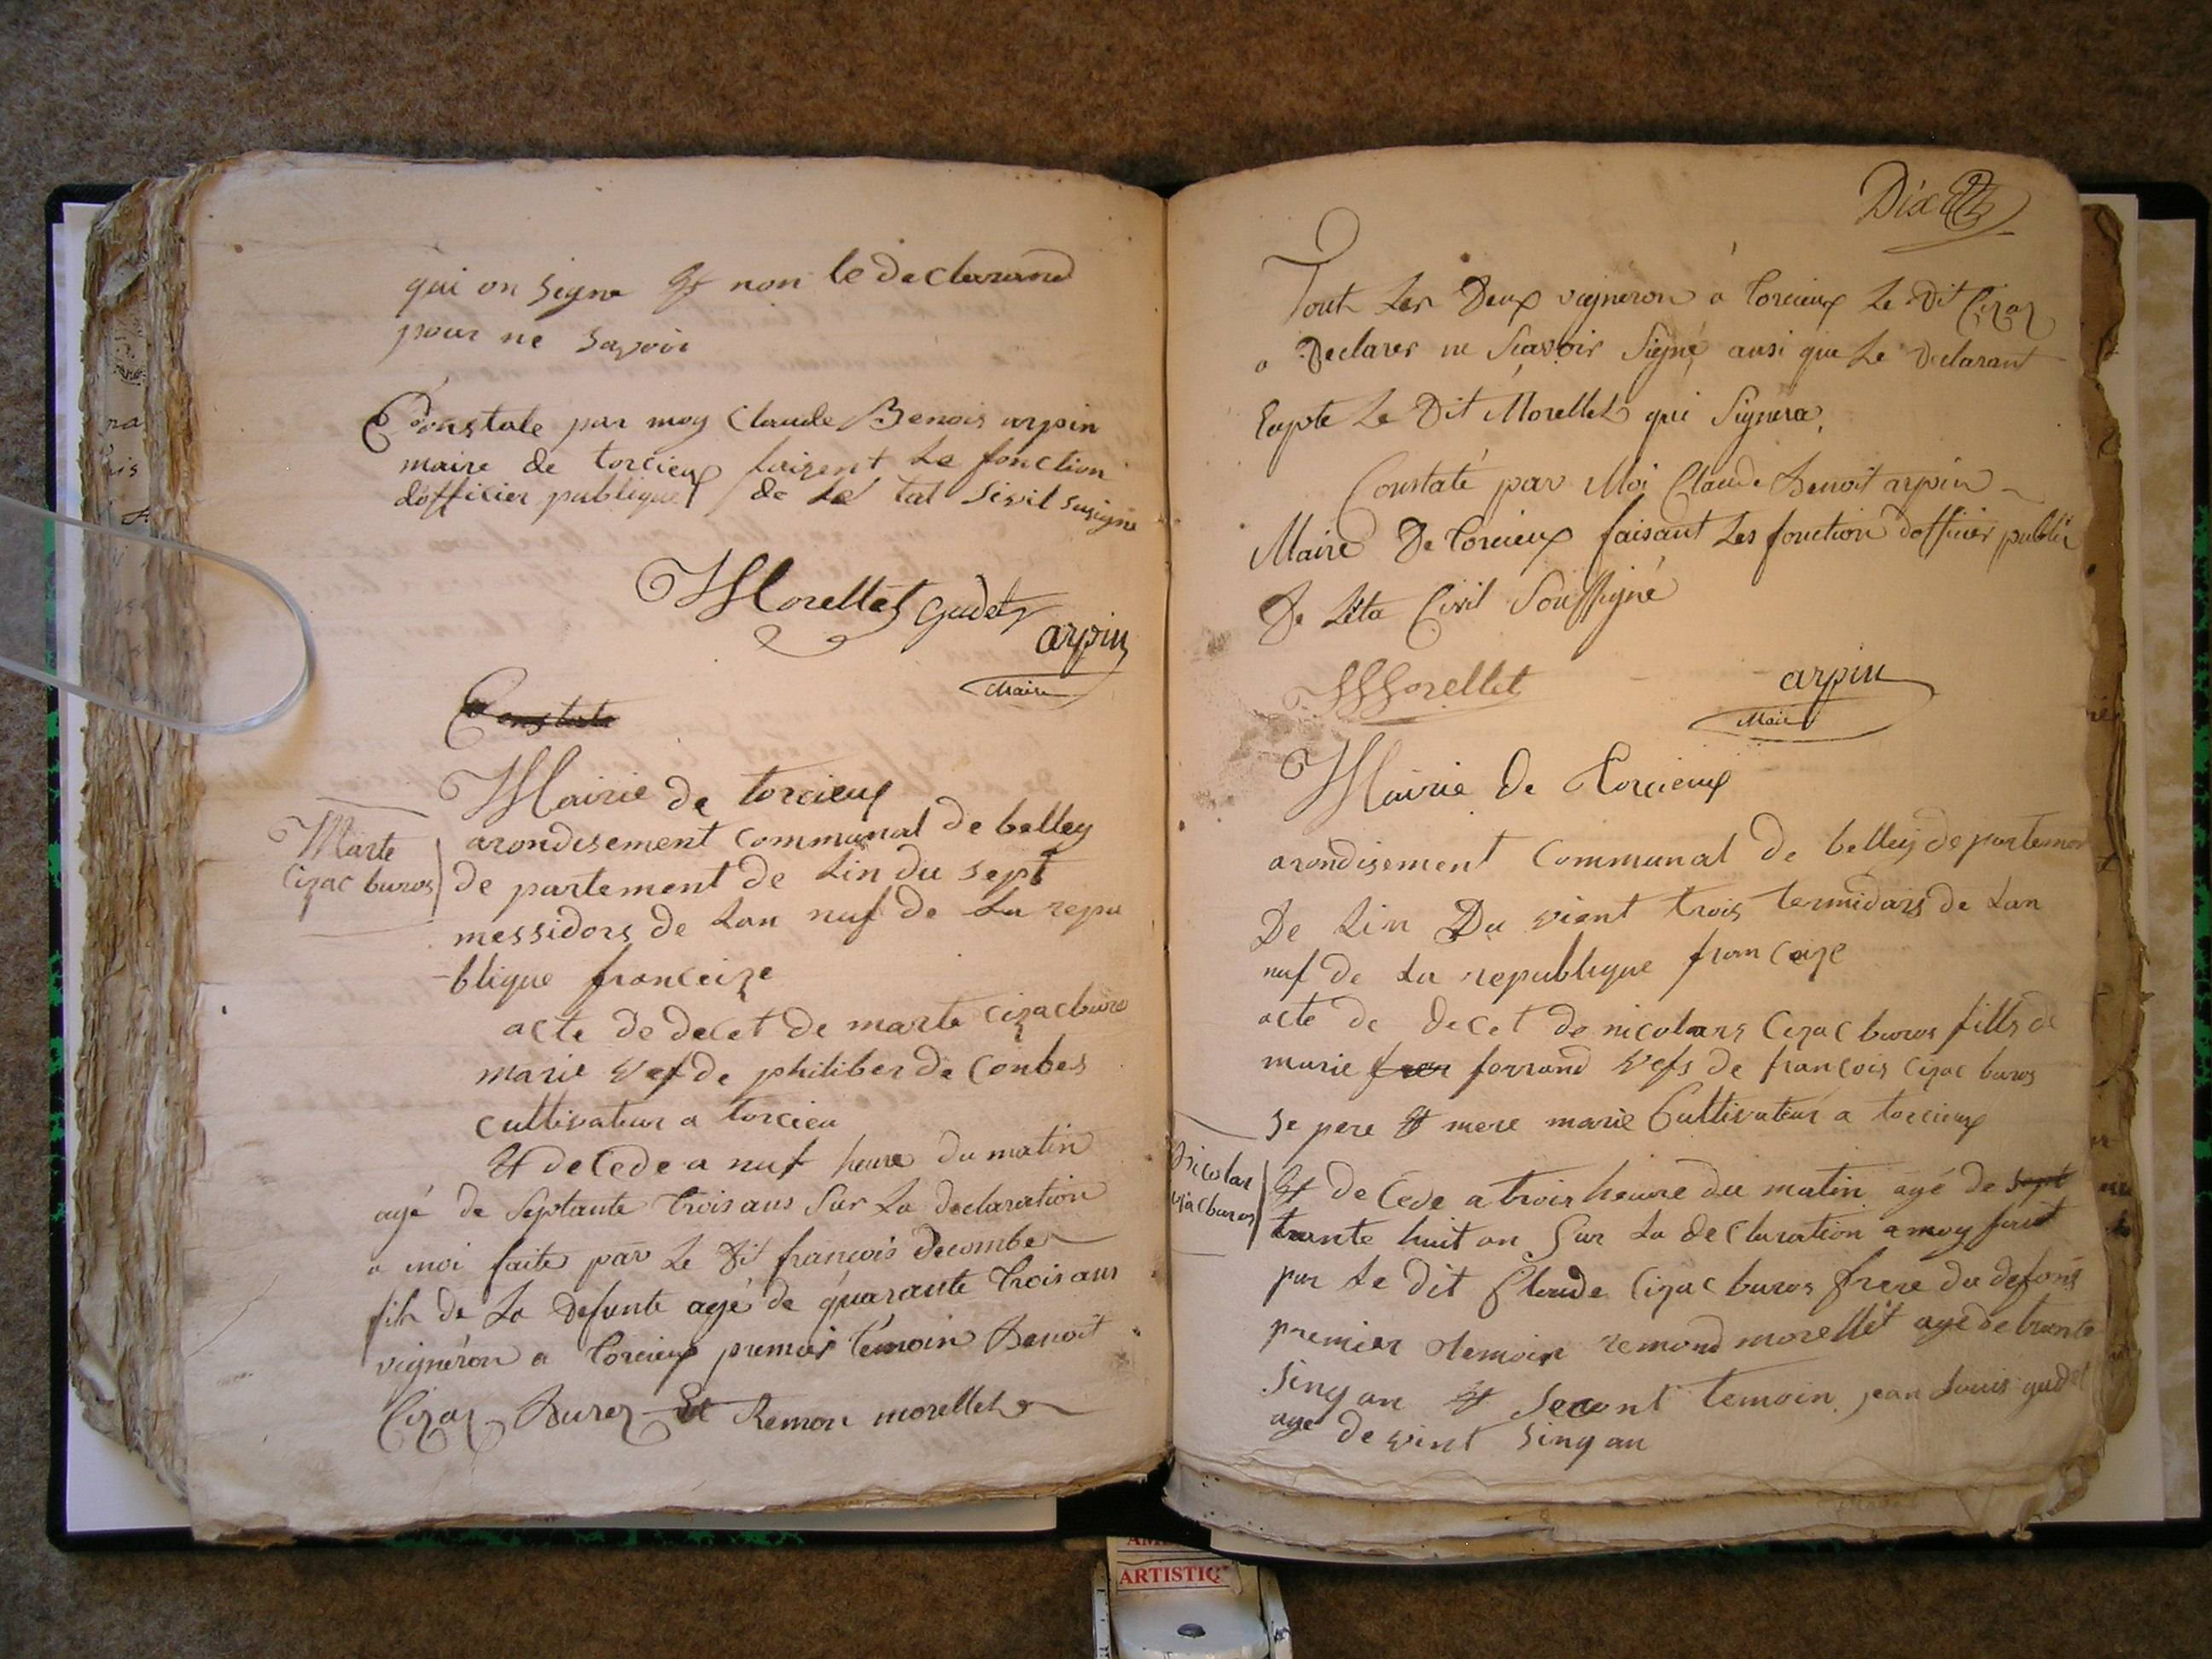 qui on signe Et non le declarand
pour ne savoir
Constate par moy Claude Benois arpin
maire de torcieux faizent Le fonction
dofficier publique de Le tat Sivil susigne
Morellet gudet
arpin
Maire
Constate
Mairie de torcieux
Marte
Cizac buros
arondisement Communal de belley
de partement de Lin du sept
messidors de Lan nuf de La repu
-blique franceize
acte de decet de marte cizacburo
marie vef de philiber de Conbes
cultivateur a torcieu
Et decede a nuf heure du matin
agé de Septante trois ans Sur La declaration
a moi faite par Le dit françois decombe
fils de La defunte agé de quarante trois ans
vigneron a torcieux premier témoin Benoit
Cizaz Burez Et Remon morellet
Dix
Tout Les Deux vigneron a torcieux Le Dit Cizaz
a Declarer ne Sçavoir Signé ausi que Le Declarant
Exapte Le Dit Morellet qui Signera
Constaté par Moi Claude Benoit arpin
Maire De torcieux faisant Les fonction dofficier public
De Léta Civil Soussigné
Morellet
arpin
Maire
Mairie de torcieux
arondisement Communal de belley departemen
De Lin Du vient trois termidors de Lan
nuf de La republique francaize
acte de decet de nicolars Cizac buros fills de
marie ferrand vefs de françois cizac buros
se pere Et mere marie Cultivateur a torcieux
Nicolas
cizacburos
Et decede a trois heure du matin agé de sept
trante huit an Sur La declaration a moy fait
par Le dit Claude Cizac buros frere du defons
premier temoin remond morellet agé de trante
sinq an Et Secont temoin jean Louis gudet
age de vint sinq an
ARTISTIQ